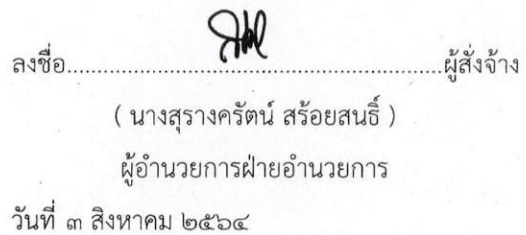 ลงชื่อ......................................................ผู้สั่งจ้าง
( นางสุรางครัตน์ สร้อยสนธิ์ )
ผู้อำนวยการฝ่ายอำนวยการ
วันที่ ๓ สิงหาคม ๒๕๖๔